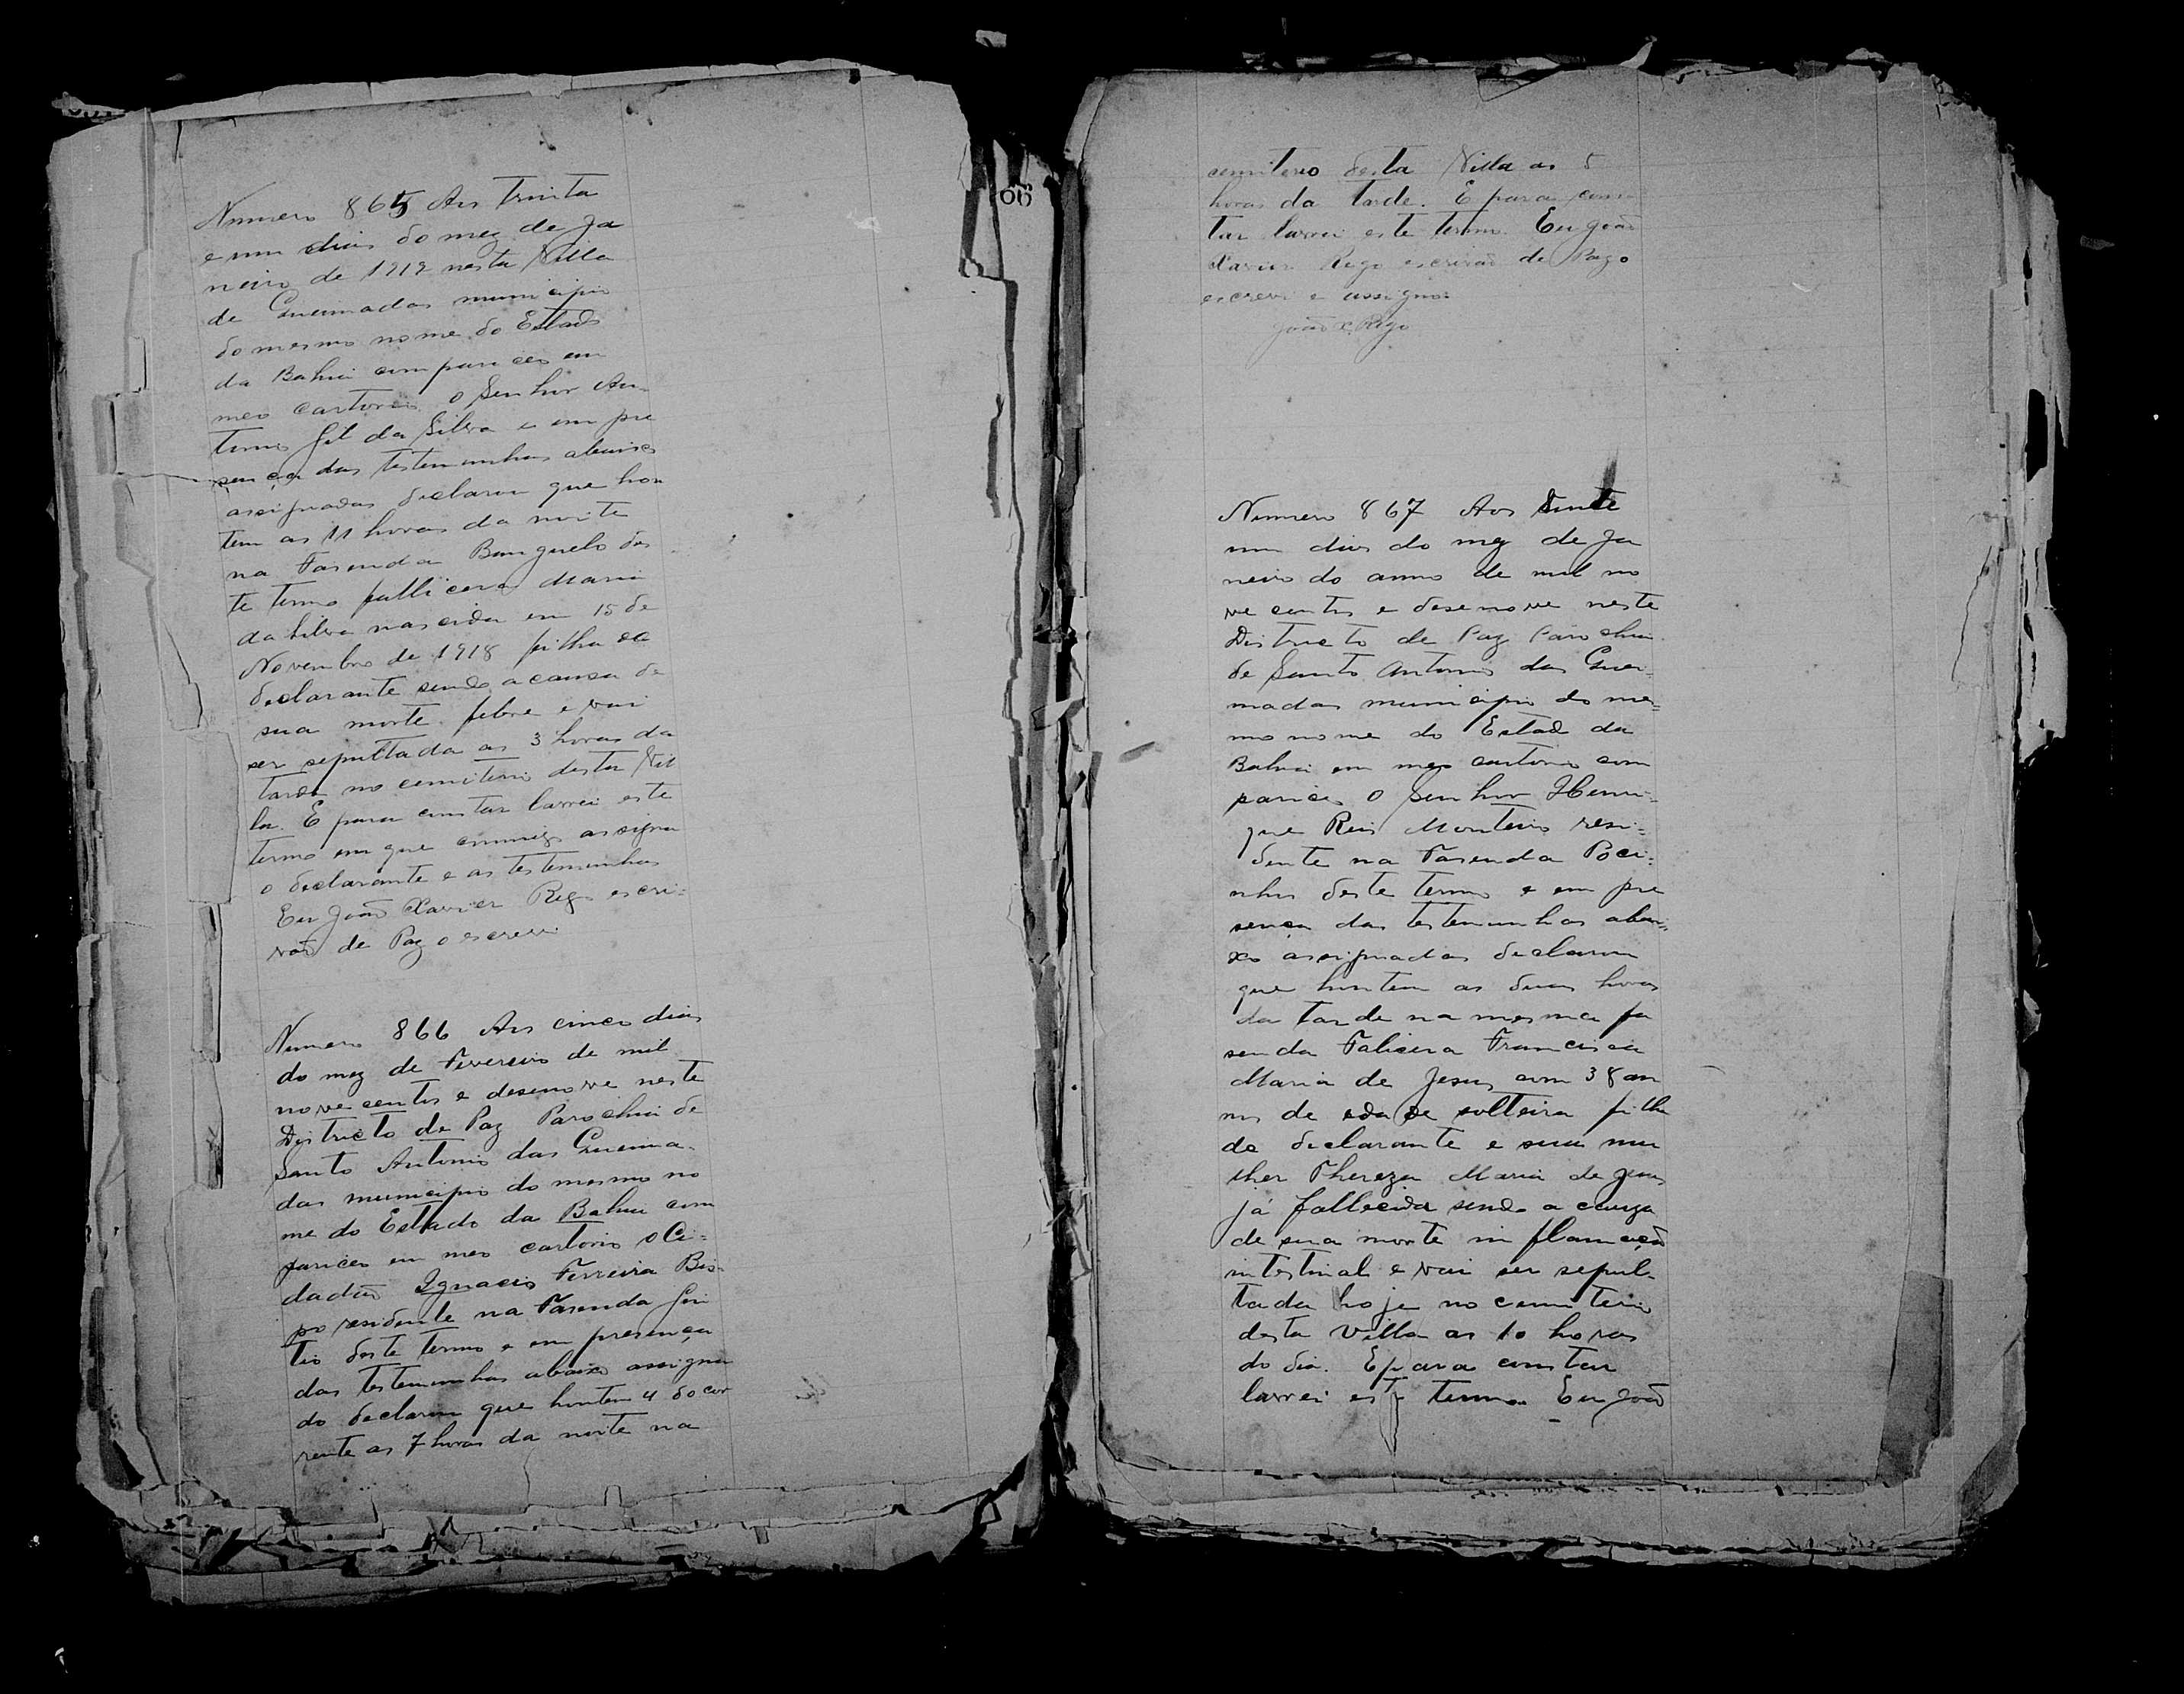 Numero 865 Aos Trinta
e um dias do mez de Ja
neiro de 1919 nesta Villa
de Queimadas municipio
do mesmo nome do Estado
da Bahia compareceo em
meo cartorio o Senhor An
tonio Gil da Silva e em pre
sença das testemunhas abaixo
assignadas declarou que hon
tem as 11 horas da noite
na Fasenda Banguelo des
te termo fallicera Maria
da Silva nascida em 15 de
Novembro de 1918 filha do
declarante sendo a causa de
sua morte febre e vai
ser sepultada as 3 horas da
tarde no cemiterio desta Vil
la. E para constar lavrei este
termo em que commigo assigna
o declarante e as testemunhas
Eu João Xavier Rego escri=
vão de Paz o escrevi
Numero 866 Aos cinco dias
do mez de Fevereiro de mil
nove centos e desenove neste
Districto de Paz Parochia de
Santo Antonio das Queima-
das municipio do mesmo no
me do Estado da Bahia com
pareceo em meo cartorio o Ci=
dadão Ignacio Ferreira Bis=
po residente na Fasenda
tio deste termo e em presença
das testemunhas abaixo assigna
do declarou que hontem 4 do cor
rente as 7 horas da noite na
66
cemiterio desta Villa as 5
horas da tarde. E para cons-
tar lavrei este termo. Eu João
Xavier Rego escrivão de Paz o
escrevi e assigno.
João X. Rego
Numero 867 Aos vinte
um dias do mez de Ja
neiro do anno de mil no
ve centos e desenove neste
Districto de Paz Parochia
de Santo Antonio das Quei-
madas municipio do mes=
mo nome do Estado da
Bahia em meo cartorio com
pareceo o Senhor Henri=
que Reis Monteiro resi=
dente na Fasenda Poci=
nhos deste termo e em pre
sença das testemunhas abai=
xo assignadas declarou
que hontem as duas horas
da tarde na mesma fa
senda Falicera Francisca
Maria de Jesus com 38 an
nos de edade solteira filha
do declarante e sua mu
lher Thereza Maria de Jesus
já fallecida sendo a causa
de sua morte in flamação
intestinal e vai ser sepul-
tada hoje no cemiterio
desta Villa as 10 horas
do dia. E para constar
lavrei este termo. Eu João